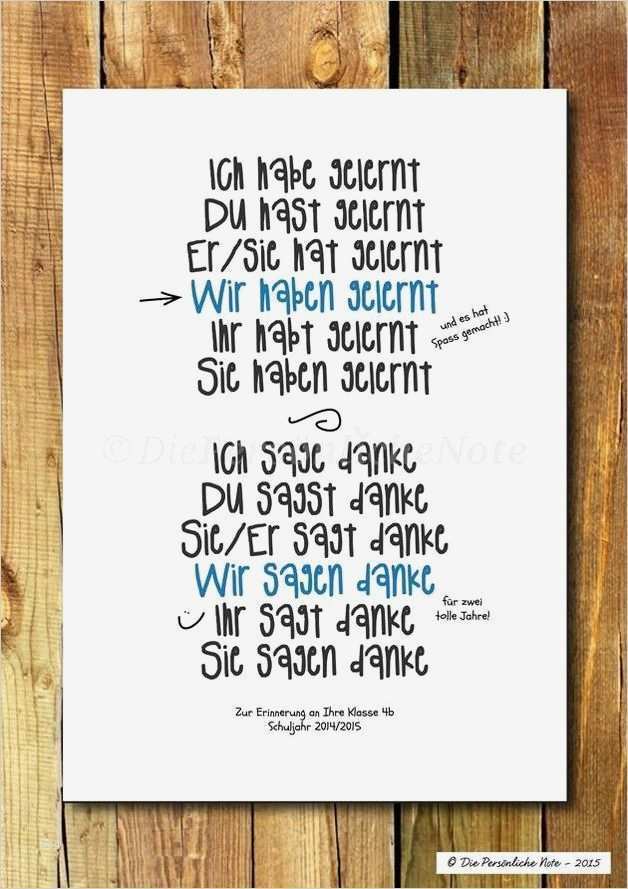 Ich habe gelernt
Du hast gelernt
Er/Sie hat gelernt
Wir haben gelernt
Ihr habt gelernt
und es hat
Spass gemacht! :)
Sie haben gelernt
©DiePersönlicheNote
Ich sage danke
Du sagst danke
Sie/Er sagt danke
Wir sagen danke
Ihr sagt danke
für zwei
tolle Jahre!
Sie sagen danke
Zur Erinnerung an Ihre Klasse 4b
Schuljahr 2014/2015
© Die Persönliche Note - 2015